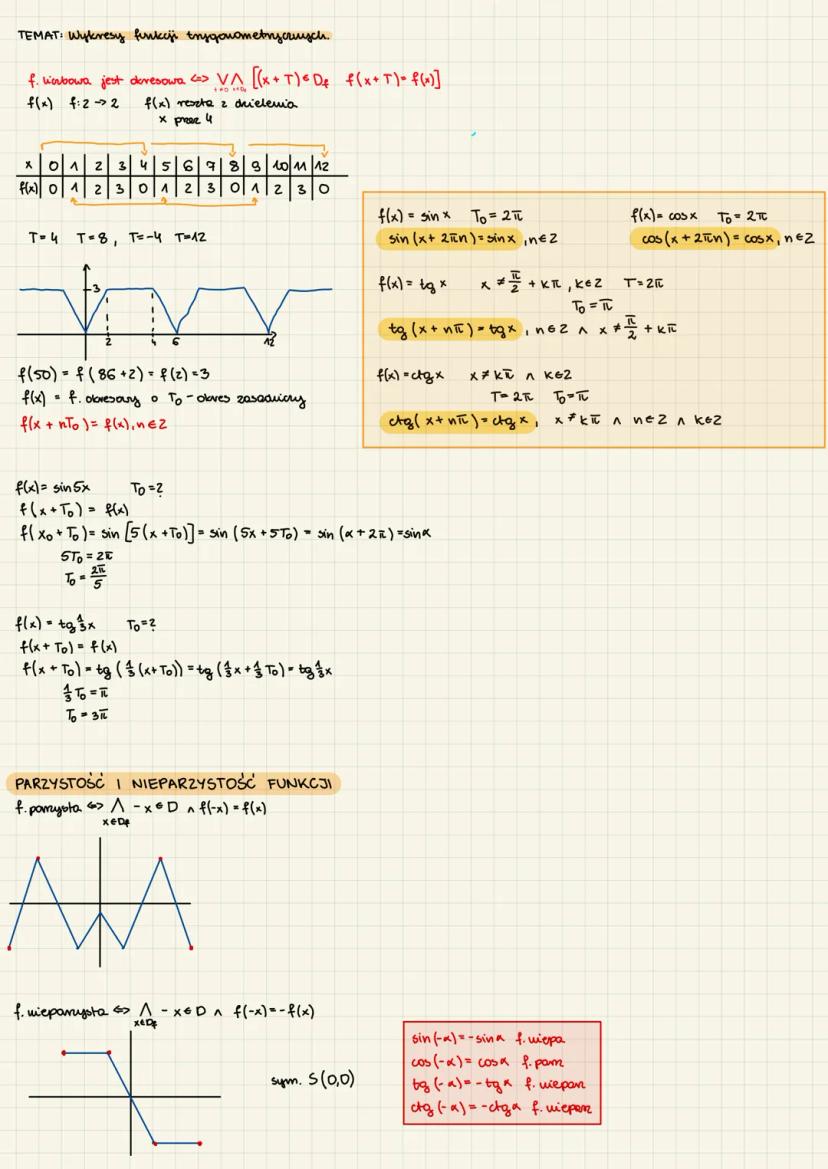 TEMAT: Wykresy funkcji trygonometrycznych.
f. liczbowa jest okresowa <=> ⋁ ⋀ [(x + T) ∈ Df f(x + T) = f(x)]
T≠0 x∈Df
f(x) f: Z -> Z f(x) reszta z dzielenia
x przez 4
x | 0 | 1 | 2 | 3 | 4 | 5 | 6 | 7 | 8 | 9 | 10 | 11 | 12
f(x) | 0 | 1 | 2 | 3 | 0 | 1 | 2 | 3 | 0 | 1 | 2 | 3 | 0
T = 4 T = 8, T = -4 T = 12
3
2 4 6 12
f(50) = f(86+2) = f(2) = 3
f(x) = f. okresowy o T₀ - okres zasadniczy
f(x + nT₀) = f(x), n ∈ Z
f(x) = sin x T₀ = 2π
sin (x + 2πn) = sin x, n ∈ Z
f(x) = cos x T₀ = 2π
cos (x + 2πn) = cos x, n ∈ Z
f(x) = tg x x ≠ π/2 + kπ, k ∈ Z T = 2π
T₀ = π
tg (x + nπ) = tg x, n ∈ Z ∧ x ≠ π/2 + kπ
f(x) = ctg x x ≠ kπ ∧ k ∈ Z
T = 2π T₀ = π
ctg (x + nπ) = ctg x, x ≠ kπ ∧ n ∈ Z ∧ k ∈ Z
f(x) = sin 5x T₀ = ?
f(x + T₀) = f(x)
f(x₀ + T₀) = sin [5(x + T₀)] = sin (5x + 5T₀) = sin (α + 2π) = sin α
5T₀ = 2π
T₀ = 2π/5
f(x) = tg 1/3 x T₀ = ?
f(x + T₀) = f(x)
f(x + T₀) = tg (1/3 (x + T₀)) = tg (1/3 x + 1/3 T₀) = tg 1/3 x
1/3 T₀ = π
T₀ = 3π
PARZYSTOŚĆ I NIEPARZYSTOŚĆ FUNKCJI
f. parzysta <=> ⋀ -x ∈ D ∧ f(-x) = f(x)
x∈Df
f. nieparzysta <=> ⋀ -x ∈ D ∧ f(-x) = -f(x)
x∈Df
sym. S(0,0)
sin (-α) = -sin α f. niepa
cos (-α) = cos α f. parz
tg (-α) = -tg α f. nieparz
ctg (-α) = -ctg α f. nieparz